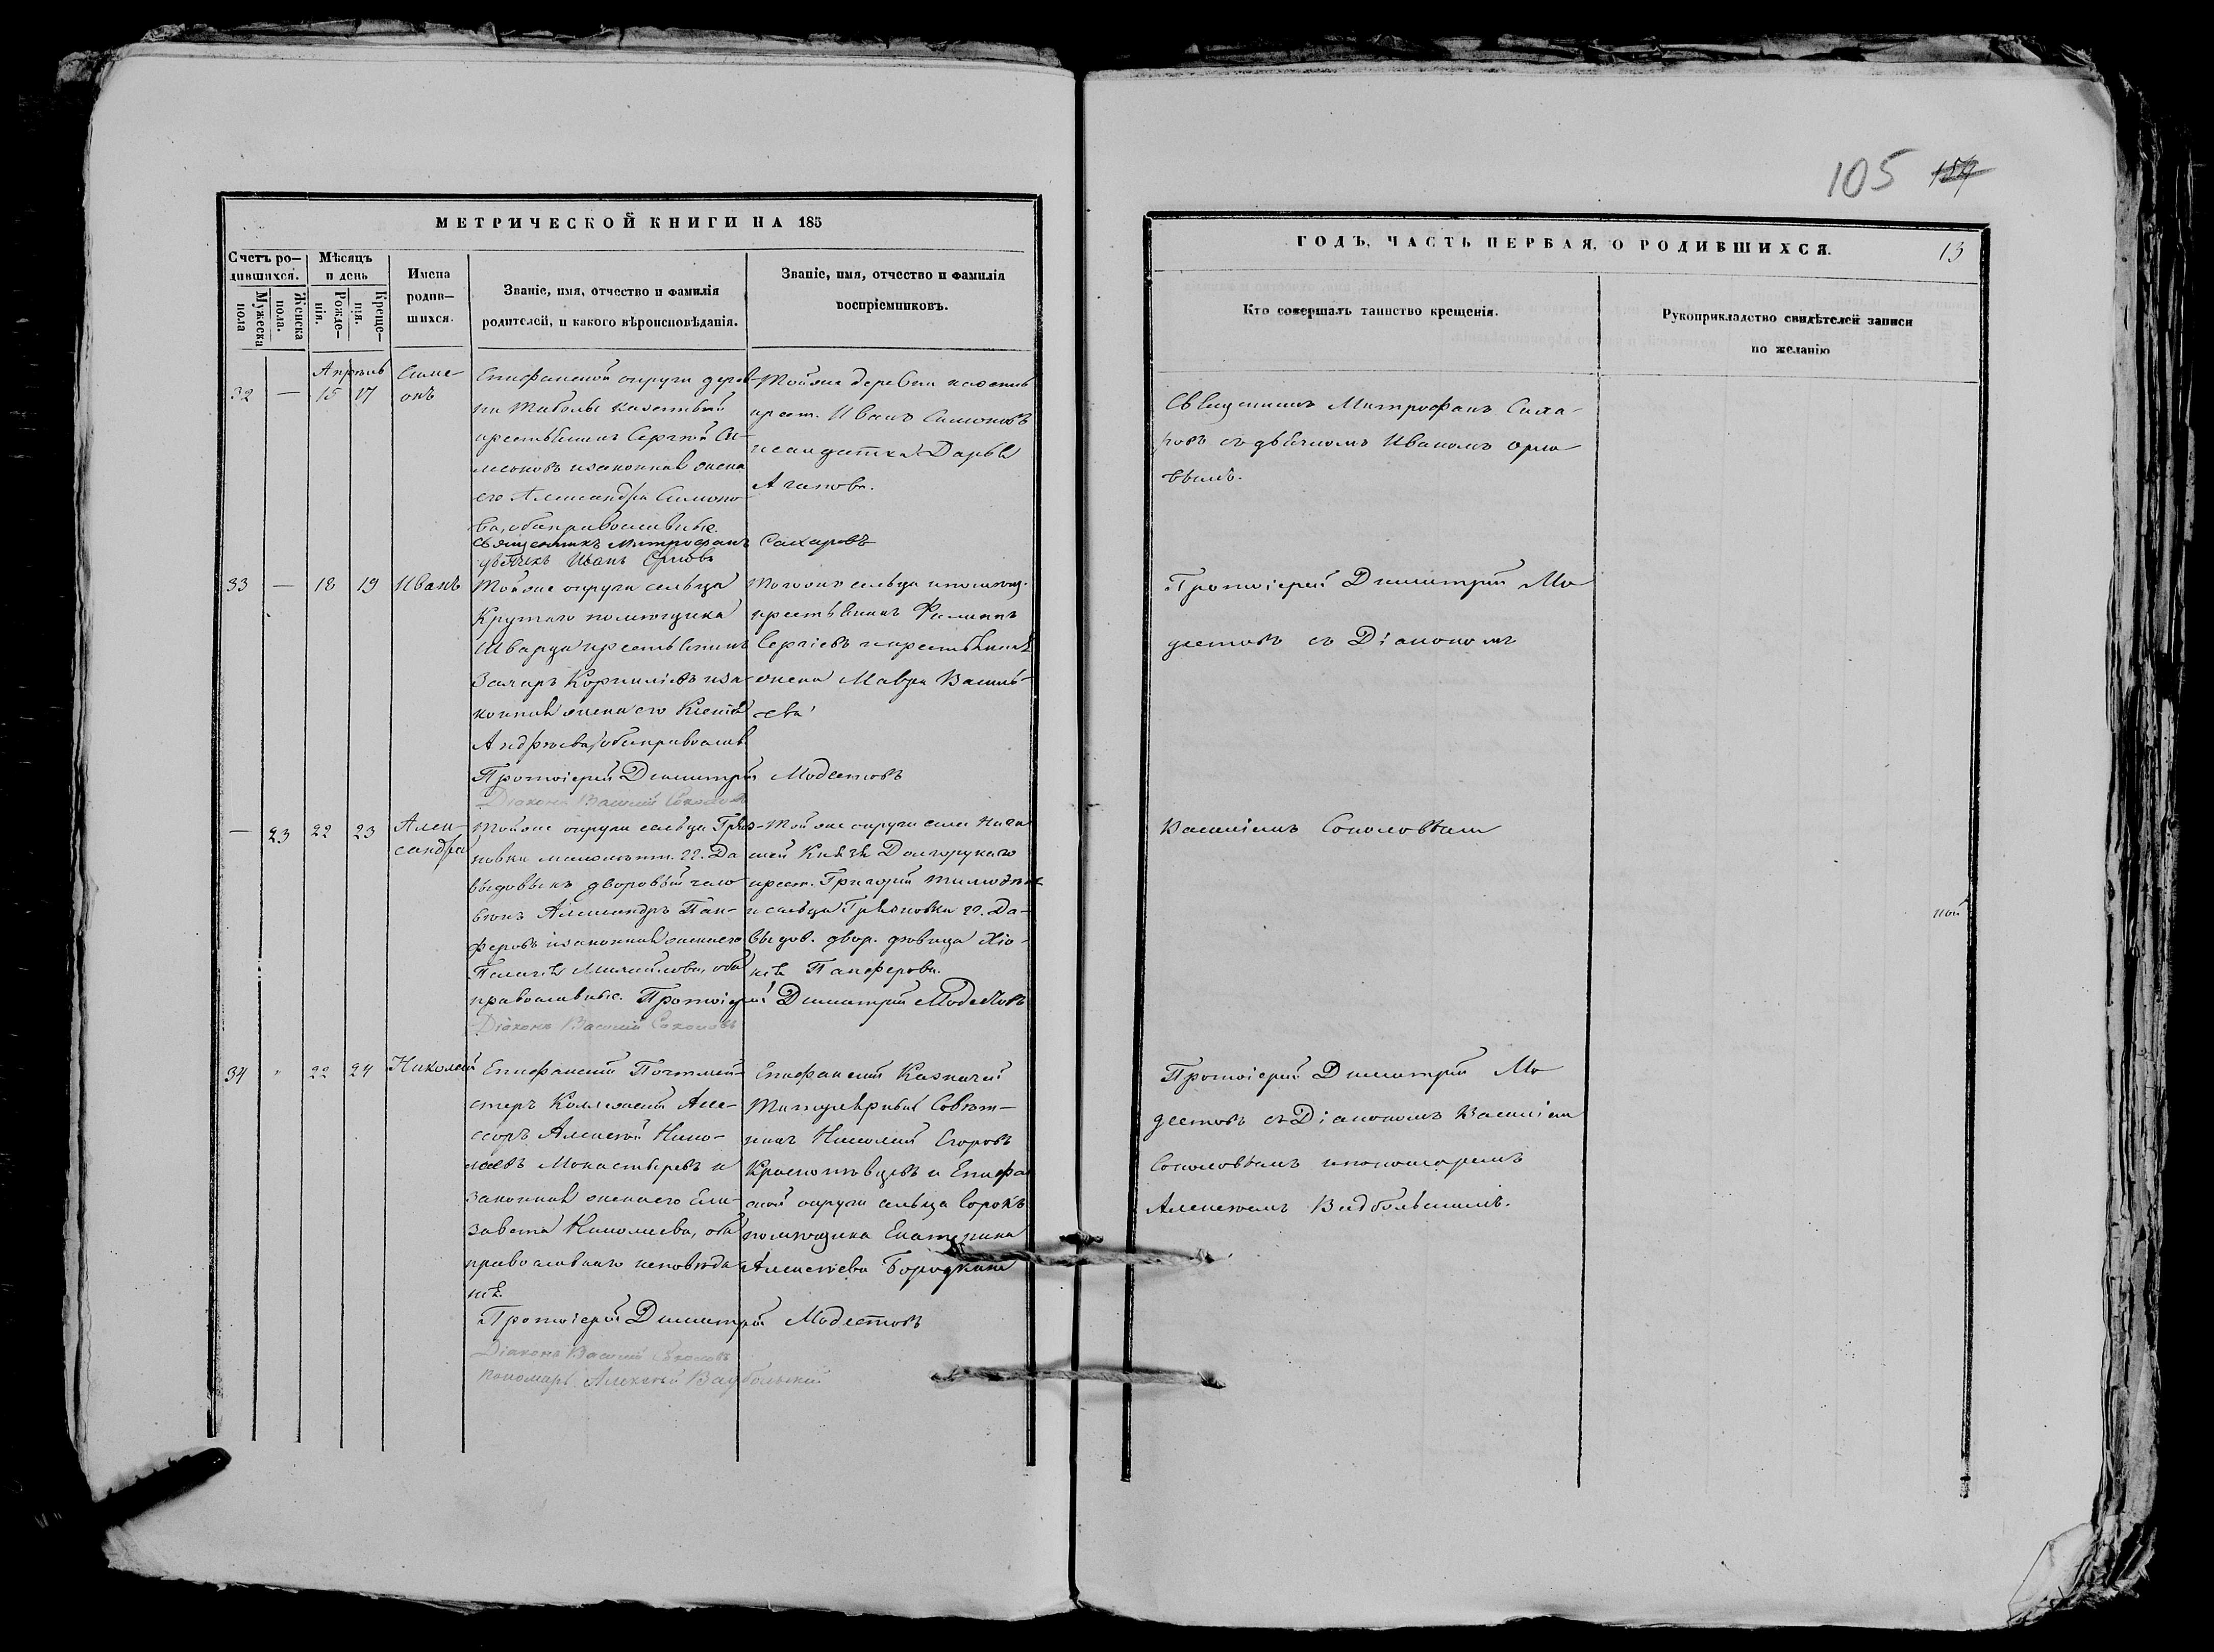 105 157
МЕТРИЧЕСКОЙ КНИГИ НА 185
ГОДЪ, ЧАСТЬ ПЕРВАЯ, О РОДИВШИХСЯ.
13
Счетъ ро-
дившихся.
Мужеска
пола
Женска
пола.
Мѣсяцъ
и день
Рожде-
нія.
Креще-
нія.
Имена
родив-
шихся.
Званіе, имя, отчество и фамилія
родителей, и какого вѣроисповѣданія.
Званіе, имя, отчество и фамилія
воспріемниковъ.
Кто совершалъ таинство крещенія.
Рукоприкладство свидѣтелей записи
по желанію
Апрѣль
32
—
15
17
Симе-
онъ
Епифанской округи дерев-
ни Таболы казенный
крестьянинъ Сергѣй Си-
меоновъ и законная жена
его Александра Симоно-
ва, оба православные.
Священникъ Митрофанъ Сахаровъ
дьячекъ Иванъ Орловъ
Той же деревни казенный
крест. Иванъ Симоновъ
и солдатка Дарья
Агапова.
Священникъ Митрофанъ Саха-
ровъ съ дьячкомъ Иваномъ Орло-
вымъ.
33
—
18
19
Иванъ
Той же округи сельца
Крутаго помѣщика
Шварца крестьянинъ
Захаръ Корнилiевъ и за-
конная жена его Ксенія
Андрѣева, оба православ.
Протоіерей Димитрій Модестовъ
Діаконъ Василій Соколовъ
Того же сельца и помѣщ.
крестьянинъ Филиппъ
Сергіевъ и крестьянская
жена Мавра Василь-
ева
Протоіерей Димитрій Мо-
дестовъ съ Діакономъ
—
23
22
23
Алек-
сандра
Той же округи сельца Гряз-
новки малолѣтн. гг. Да-
выдовыхъ дворовый чело-
вѣкъ Александръ Пан-
феровъ и законная жена его
Пелагія Михайлова, оба
православные. Протоіерей Димитрій Модестовъ
Діаконъ Василій Соколовъ
Той же округи села
Князя Долгорукаго
крест. Григорій
и сельца Грязновки гг. Да-
выдов. двор. дѣвица Хіо-
нія Панферова.
Василіемъ Соколовымъ
34
22
24
Николай
Епифанскій Почтмей-
стеръ Коллежскій Асе-
соръ Алексѣй Нико-
лаевъ Монастыревъ и
законная жена его Ели-
завета Николаева, оба
православнаго исповѣда-
нія.
Протоіерей Димитрій Модестовъ
Діаконъ Василій Соколовъ
Пономарь Алексѣй
Епифанскій Казначей
Титулярный Совѣт-
никъ Николай Егоровъ
и Епифан-
ской округи сельца
помѣщица Екатерина
Алексѣева Бородкина
Протоіерей Димитрій Мо-
дестовъ съ Діакономъ Василіем
Соколовымъ и пономаремъ
Алексѣемъ